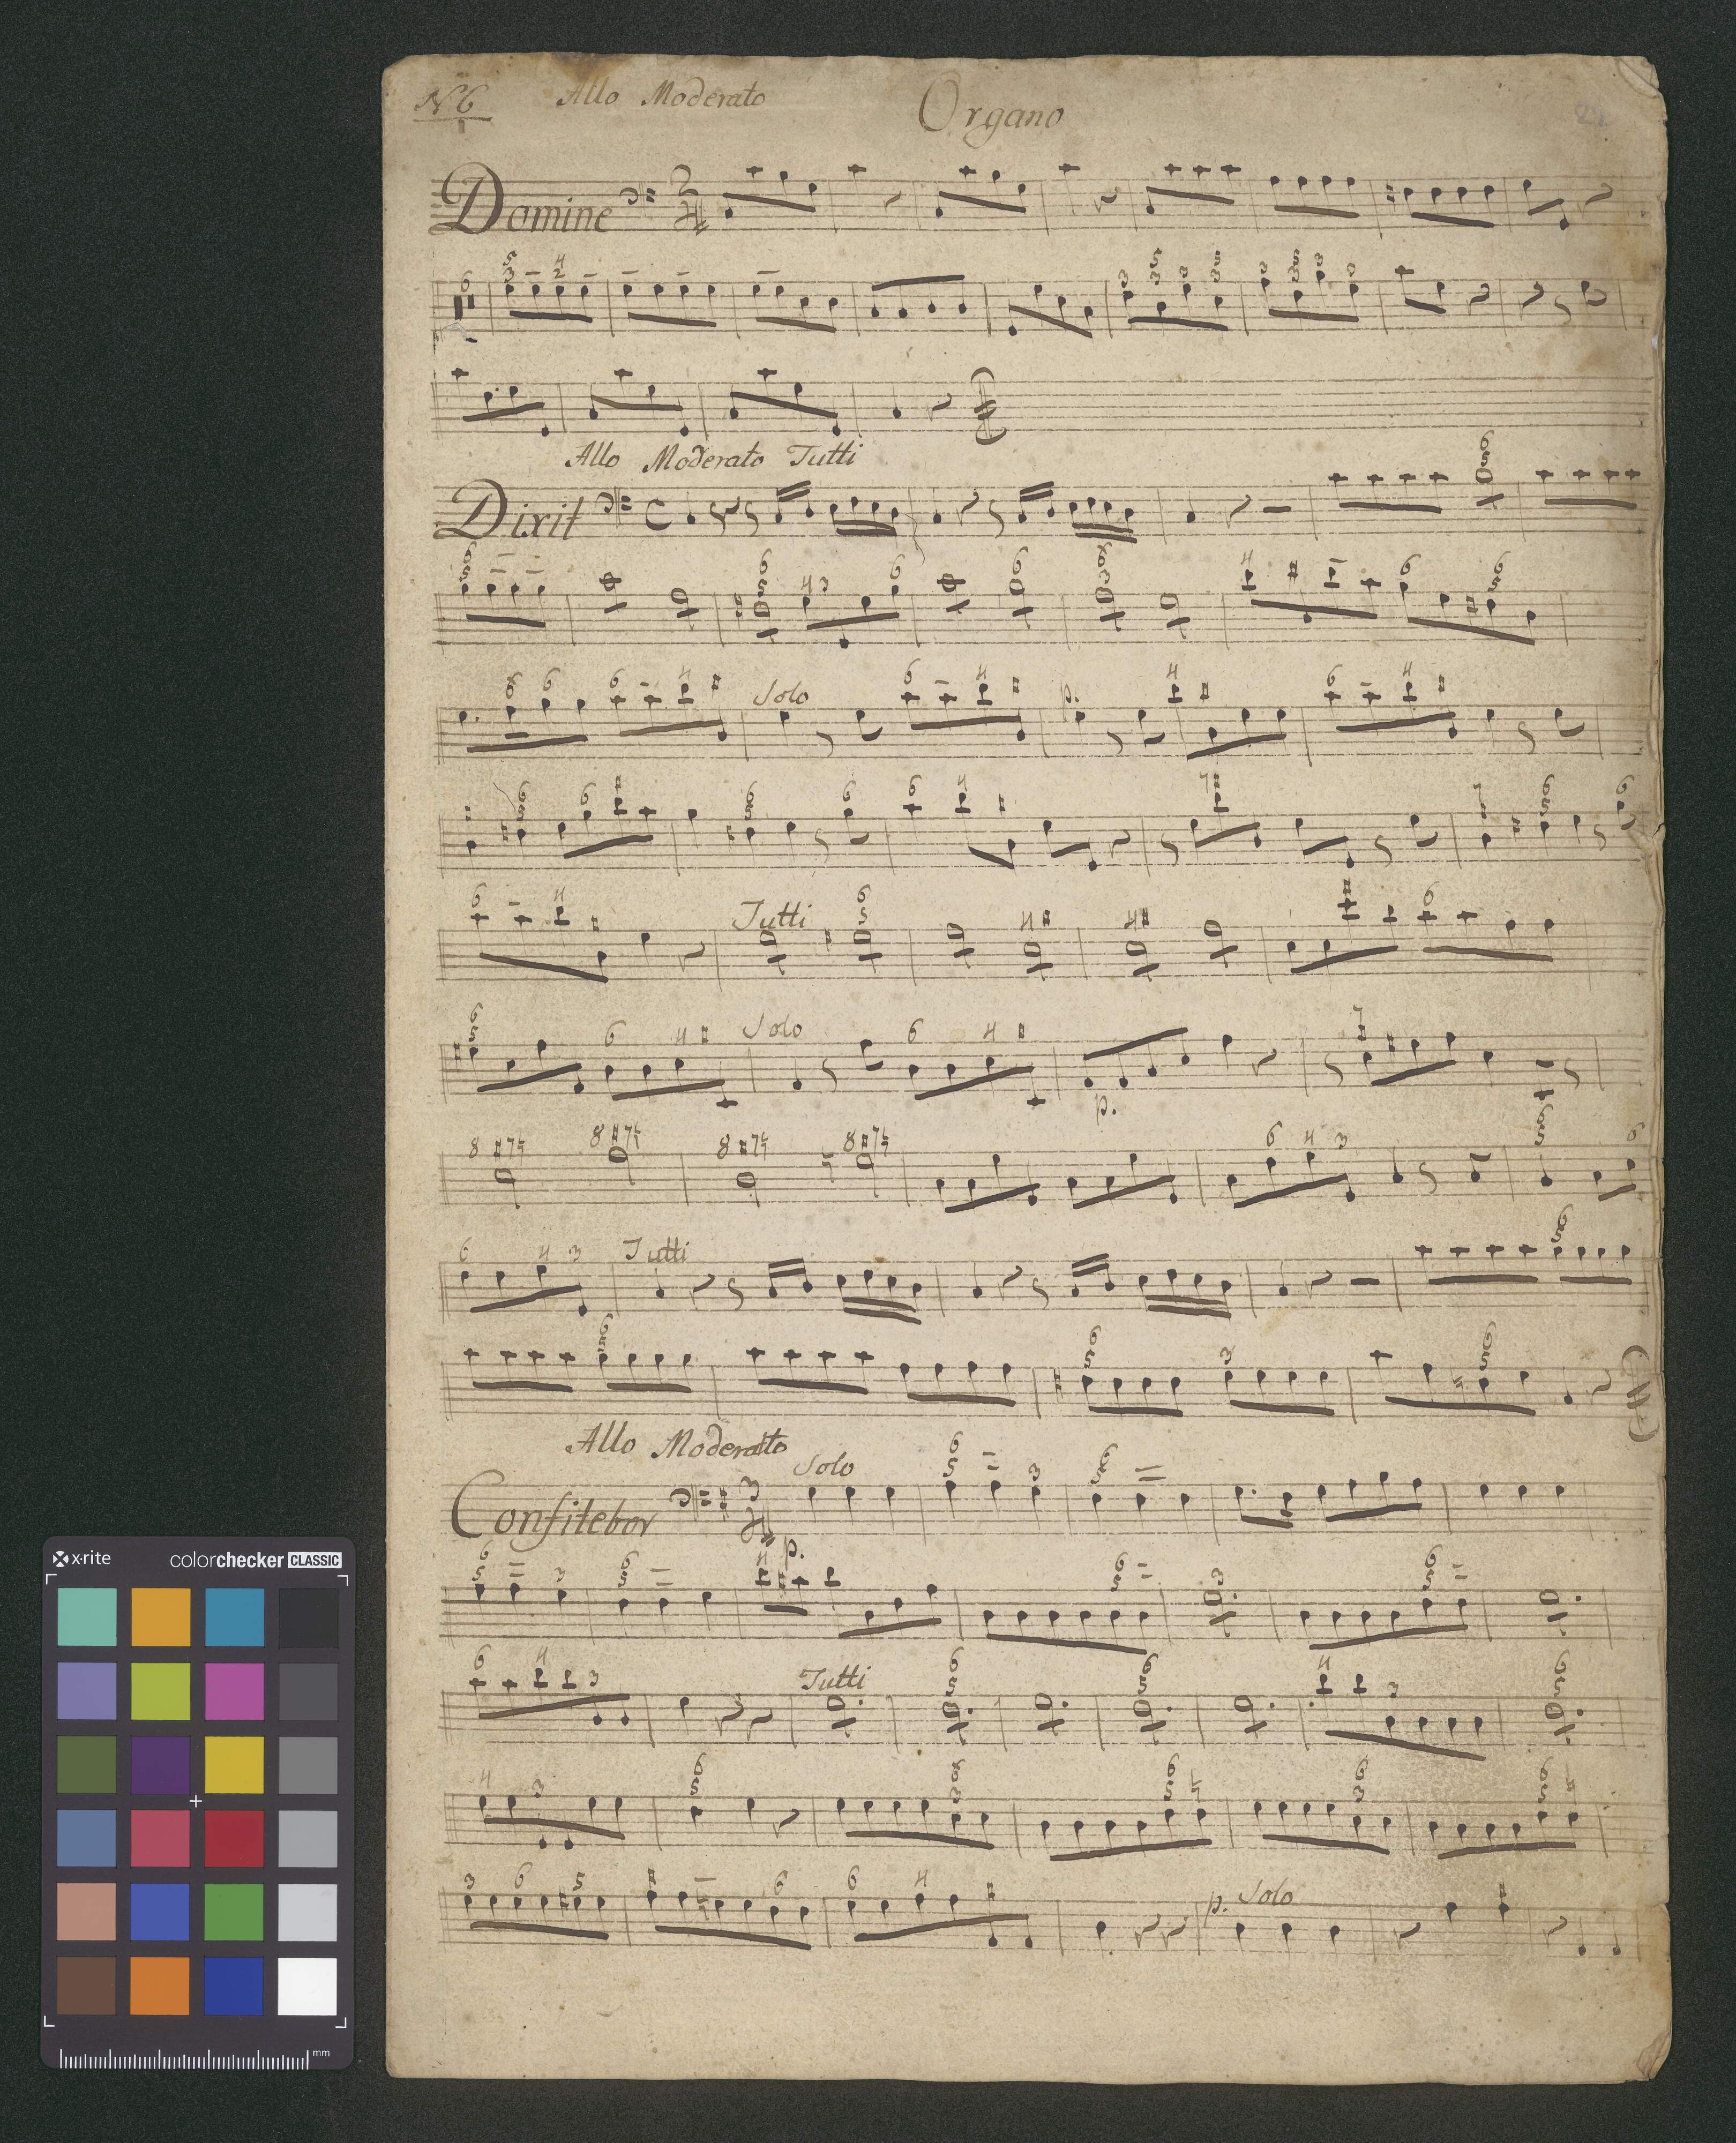 N6 Allo Moderato Organo
Domine
Allo Moderato Tutti
Dixit
Solo p.
Tutti
Solo
p.
Tutti
Allo Moderato
Solo
Confitebor
p.
Tutti
p. Solo
x·rite colorchecker CLASSIC
mm